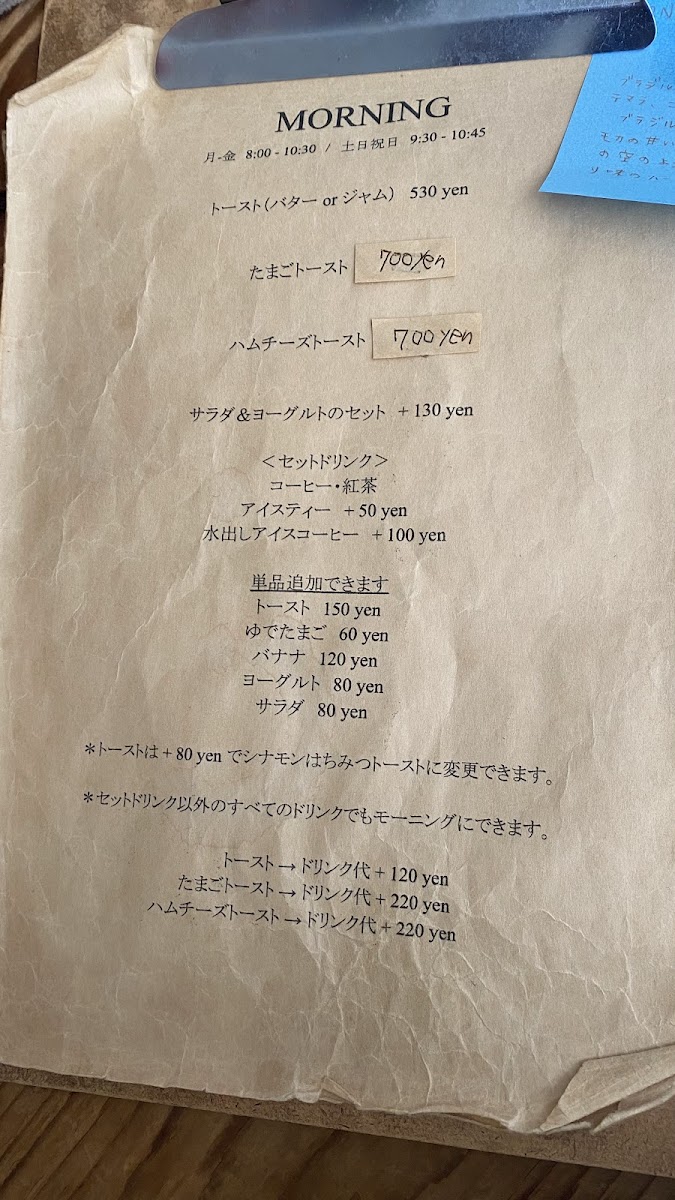 MORNING
月-金 8:00 - 10:30 / 土日祝日 9:30 - 10:45
トースト(バター or ジャム) 530 yen
たまごトースト 700 yen
ハムチーズトースト 700 yen
サラダ&ヨーグルトのセット + 130 yen
<セットドリンク>
コーヒー・紅茶
アイスティー + 50 yen
水出しアイスコーヒー + 100 yen
単品追加できます
トースト 150 yen
ゆでたまご 60 yen
バナナ 120 yen
ヨーグルト 80 yen
サラダ 80 yen
*トーストは + 80 yen でシナモンはちみつトーストに変更できます。
*セットドリンク以外のすべてのドリンクでもモーニングにできます。
トースト → ドリンク代 + 120 yen
たまごトースト → ドリンク代 + 220 yen
ハムチーズトースト → ドリンク代 + 220 yen
ブラジル
テマラ、
ブラジル
モカの甘い
の空の上